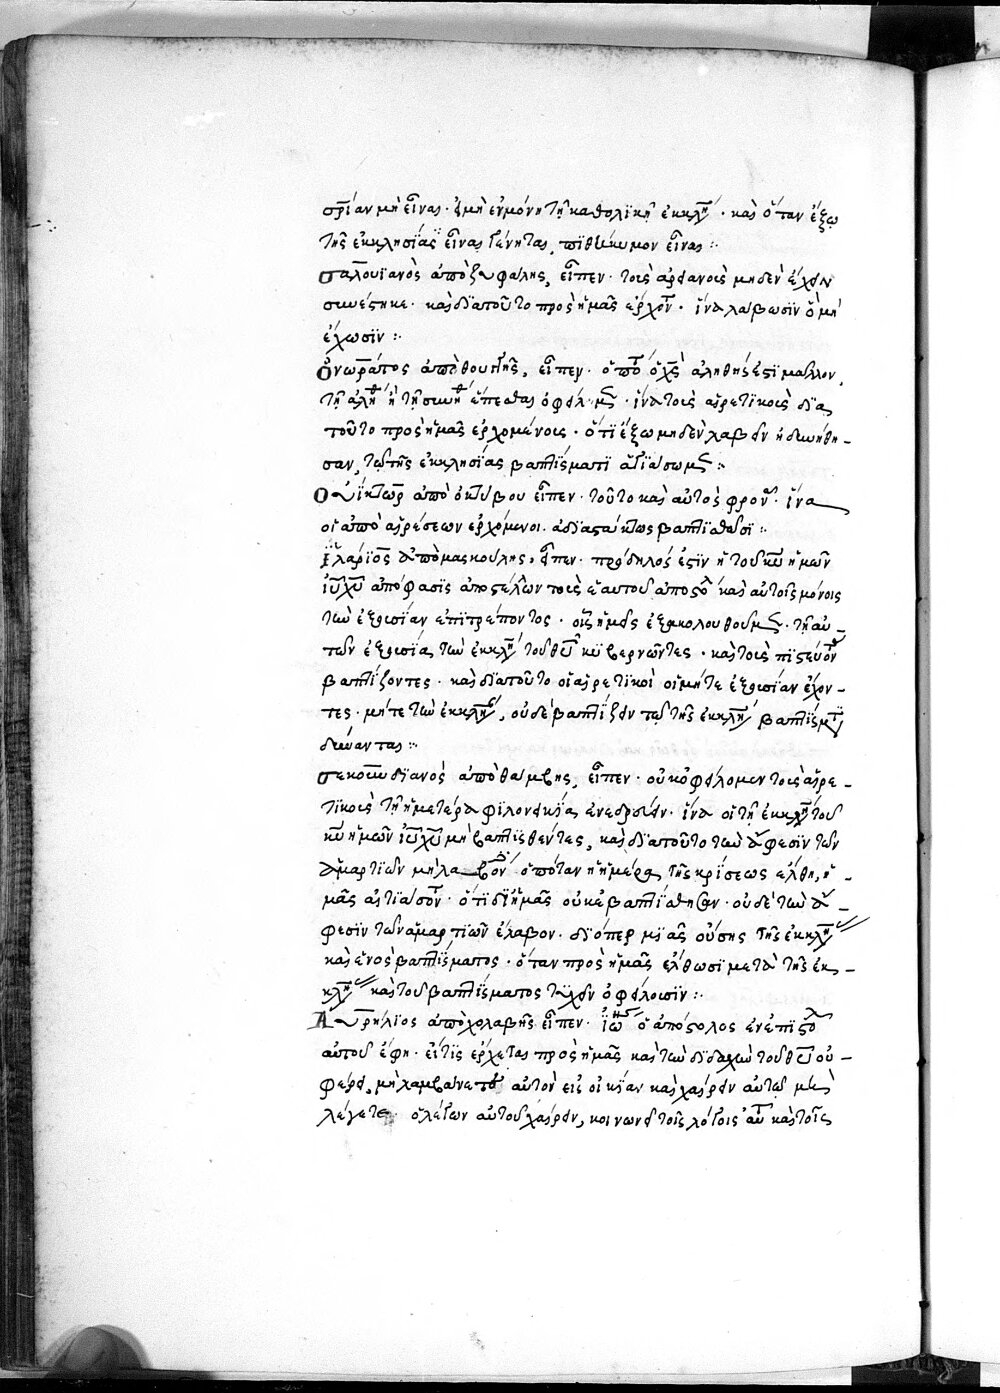 στρίαν μὴ εἶναι. εἰ μὴ ἐν μόνῃ τῇ καθολϊκῇ ἐκκλη. καὶ ὅταν ἔξω
τῆς ἐκκλησίας εἶναι γένηται,
σαλουϊανὸς ἀπὸ ξυφάλης, εἶπεν. τοὺς αἱρετικοὺς μηδὲν ἔχειν
συνέστηκε. καὶ δϊατοῦτο πρὸς ἡμᾶς ἔρχον. ἵνα λάβωσϊν ὃ μὴ
ἔχωσϊν :
ὀνωράτος ἀπὸ θουκκης, εἶπεν. ὁ χς ἀλήθεια ἐστϊ μᾶλλον,
τῇ ἀλη ἢ τῇ συνη ἕπεσθαι ὀφείλομεν. ἵνα τοὺς αἱρετϊκοὺς δϊα
τοῦτο πρὸς ἡμᾶς ἐρχομένοις. ὅτϊ ἔξω μηδὲν λαβεῖν ἠδυνήθη-
σαν, τῷ τῆς ἐκκλησίας βαπτίσματϊ ἁγϊάσωμεν :
Οὐΐκτωρ ἀπὸ ὀκτάβου εἶπεν. τοῦτο καὶ αὐτοὶ φρον. ἵνα
οἱ ἀπὸ αἱρέσεων ἐρχόμενοι. ἀδιαστάκτως βαπτϊσθῶσϊ :
ϊλάρϊος ἀπὸ μασκούλης, εἶπεν. πρόδηλός ἐστϊν ἡ τοῦ κυ ἡμῶν
ϊυ χυ ἀπόφασϊς ἀποστέλλων τοὺς ἑαυτοῦ ἀποστο καὶ αὐτοῖς μόνοις
τὴν ἐξουσίαν ἐπϊτρέποντος. οἷς ἡμεῖς ἐξακολουθοῦμεν. τῇ αὐ-
τῶν ἐξουσίᾳ τὴν ἐκκλη τοῦ θυ κυβερνῶντες. καὶ τοὺς πϊστεύον
βαπτίζοντες. καὶ δϊατοῦτο οἱ αἱρετϊκοὶ οἱ μήτε ἐξουσίαν ἔχον-
τες. μήτε τὴν ἐκκλη, οὐδὲ βαπτίζειν τῷ τῆς ἐκκλη βαπτίσμ
δύνανται :
σεκουνδϊανὸς ἀπὸ θάμβης, εἶπεν. οὐκ ὀφείλομεν τοὺς αἱρε-
τϊκοὺς τῇ ἡμετέρᾳ φϊλονεικίᾳ ἐνεδρεύειν. ἵνα οἱ τῇ ἐκκλη τοῦ
κυ ἡμῶν ϊυ χυ μὴ βαπτϊσθέντες, καὶ δϊατοῦτο τὴν ἄφεσϊν τῶν
ἁμαρτϊῶν μὴ λαβόν ὁπόταν ἡ ἡμέρα τῆς κρίσεως ἔλθῃ, ἡ-
μᾶς αἰτϊάσον. ὅτϊ δϊ' ἡμᾶς οὐκ ἐβαπτίσθησαν. οὐδὲ τὴν ἄ-
φεσϊν τῶν ἁμαρτϊῶν ἔλαβον. δϊόπερ μϊᾶς οὔσης τῆς ἐκκλη
καὶ ἑνὸς βαπτίσματος. ὅταν πρὸς ἡμᾶς ἔλθωσϊ μετὰ τῆς ἐκ-
κλη καὶ τοῦ βαπτίσματος τυχεῖν ὀφείλουσϊν :
Αὐρήλϊος ἀπὸ χολάβης εἶπεν. ϊω ὁ ἀπόστολος ἐν ἐπϊστο
αὐτοῦ ἔφη. εἴ τϊς ἔρχεται πρὸς ἡμᾶς καὶ τὴν δϊδαχὴν τοῦ θυ οὐ-
φέρει, μὴ λαμβάνετε αὐτὸν εἰς οἰκίαν καὶ χαίρειν αὐτῷ μὴ
λέγετε. ὁ λέγων αὐτοῦ χαίρειν, κοινωνεῖ τοῖς λόγοις αυ καὶ τοῖς